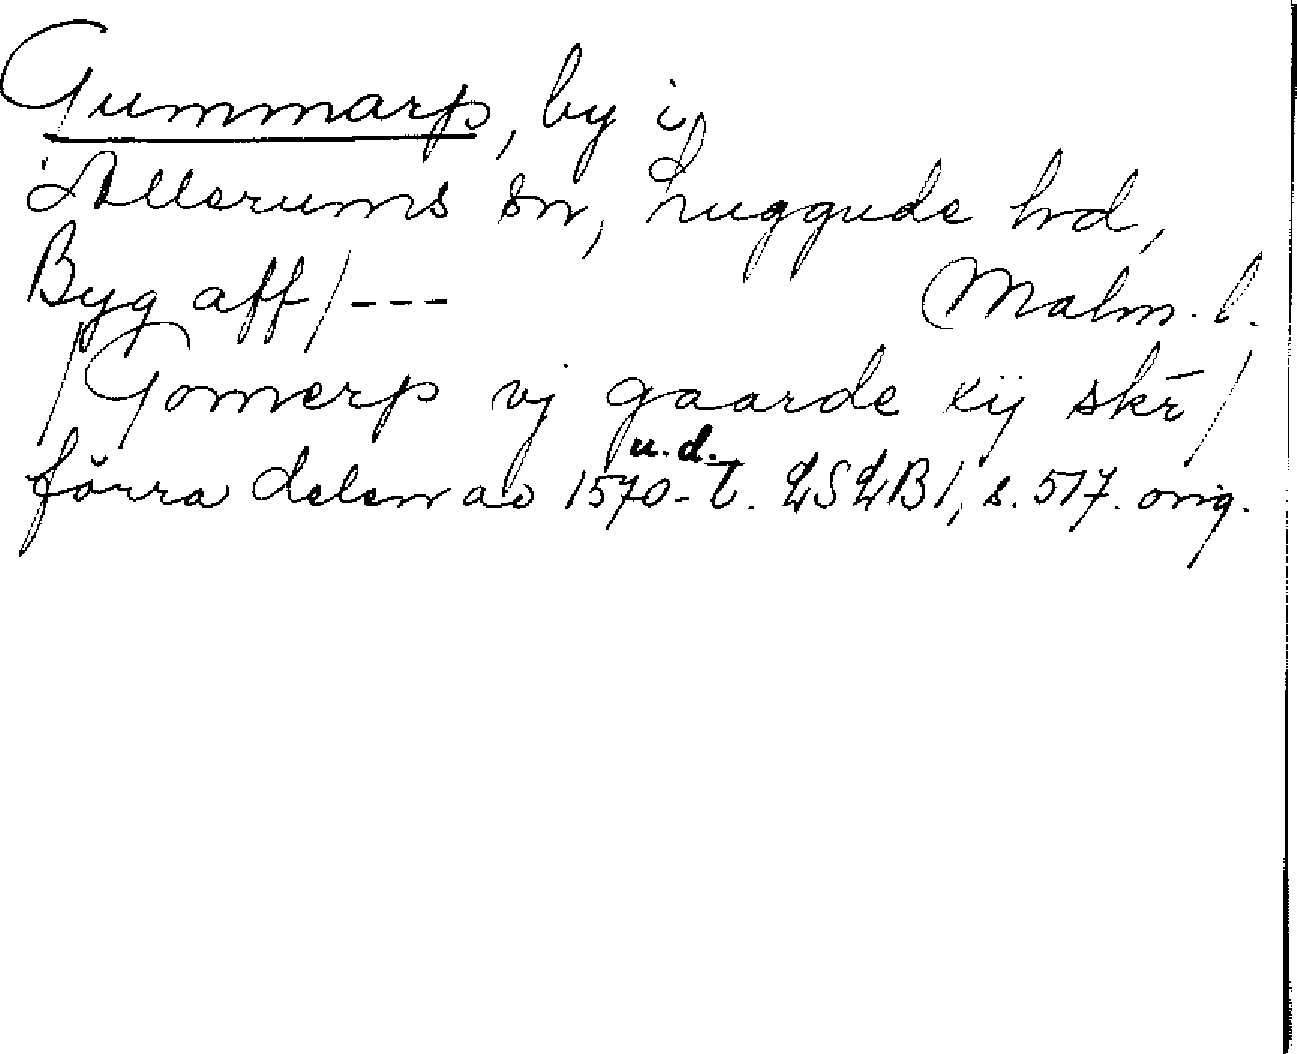 Gummarp, by i
Allerums sn, Luggude hd,
Byg aff/--- Malm. l.
/Gomerp vj gaarde xij skr̄/
u.d.
förra delen av 1570-t. LSLB1, s. 517. orig.